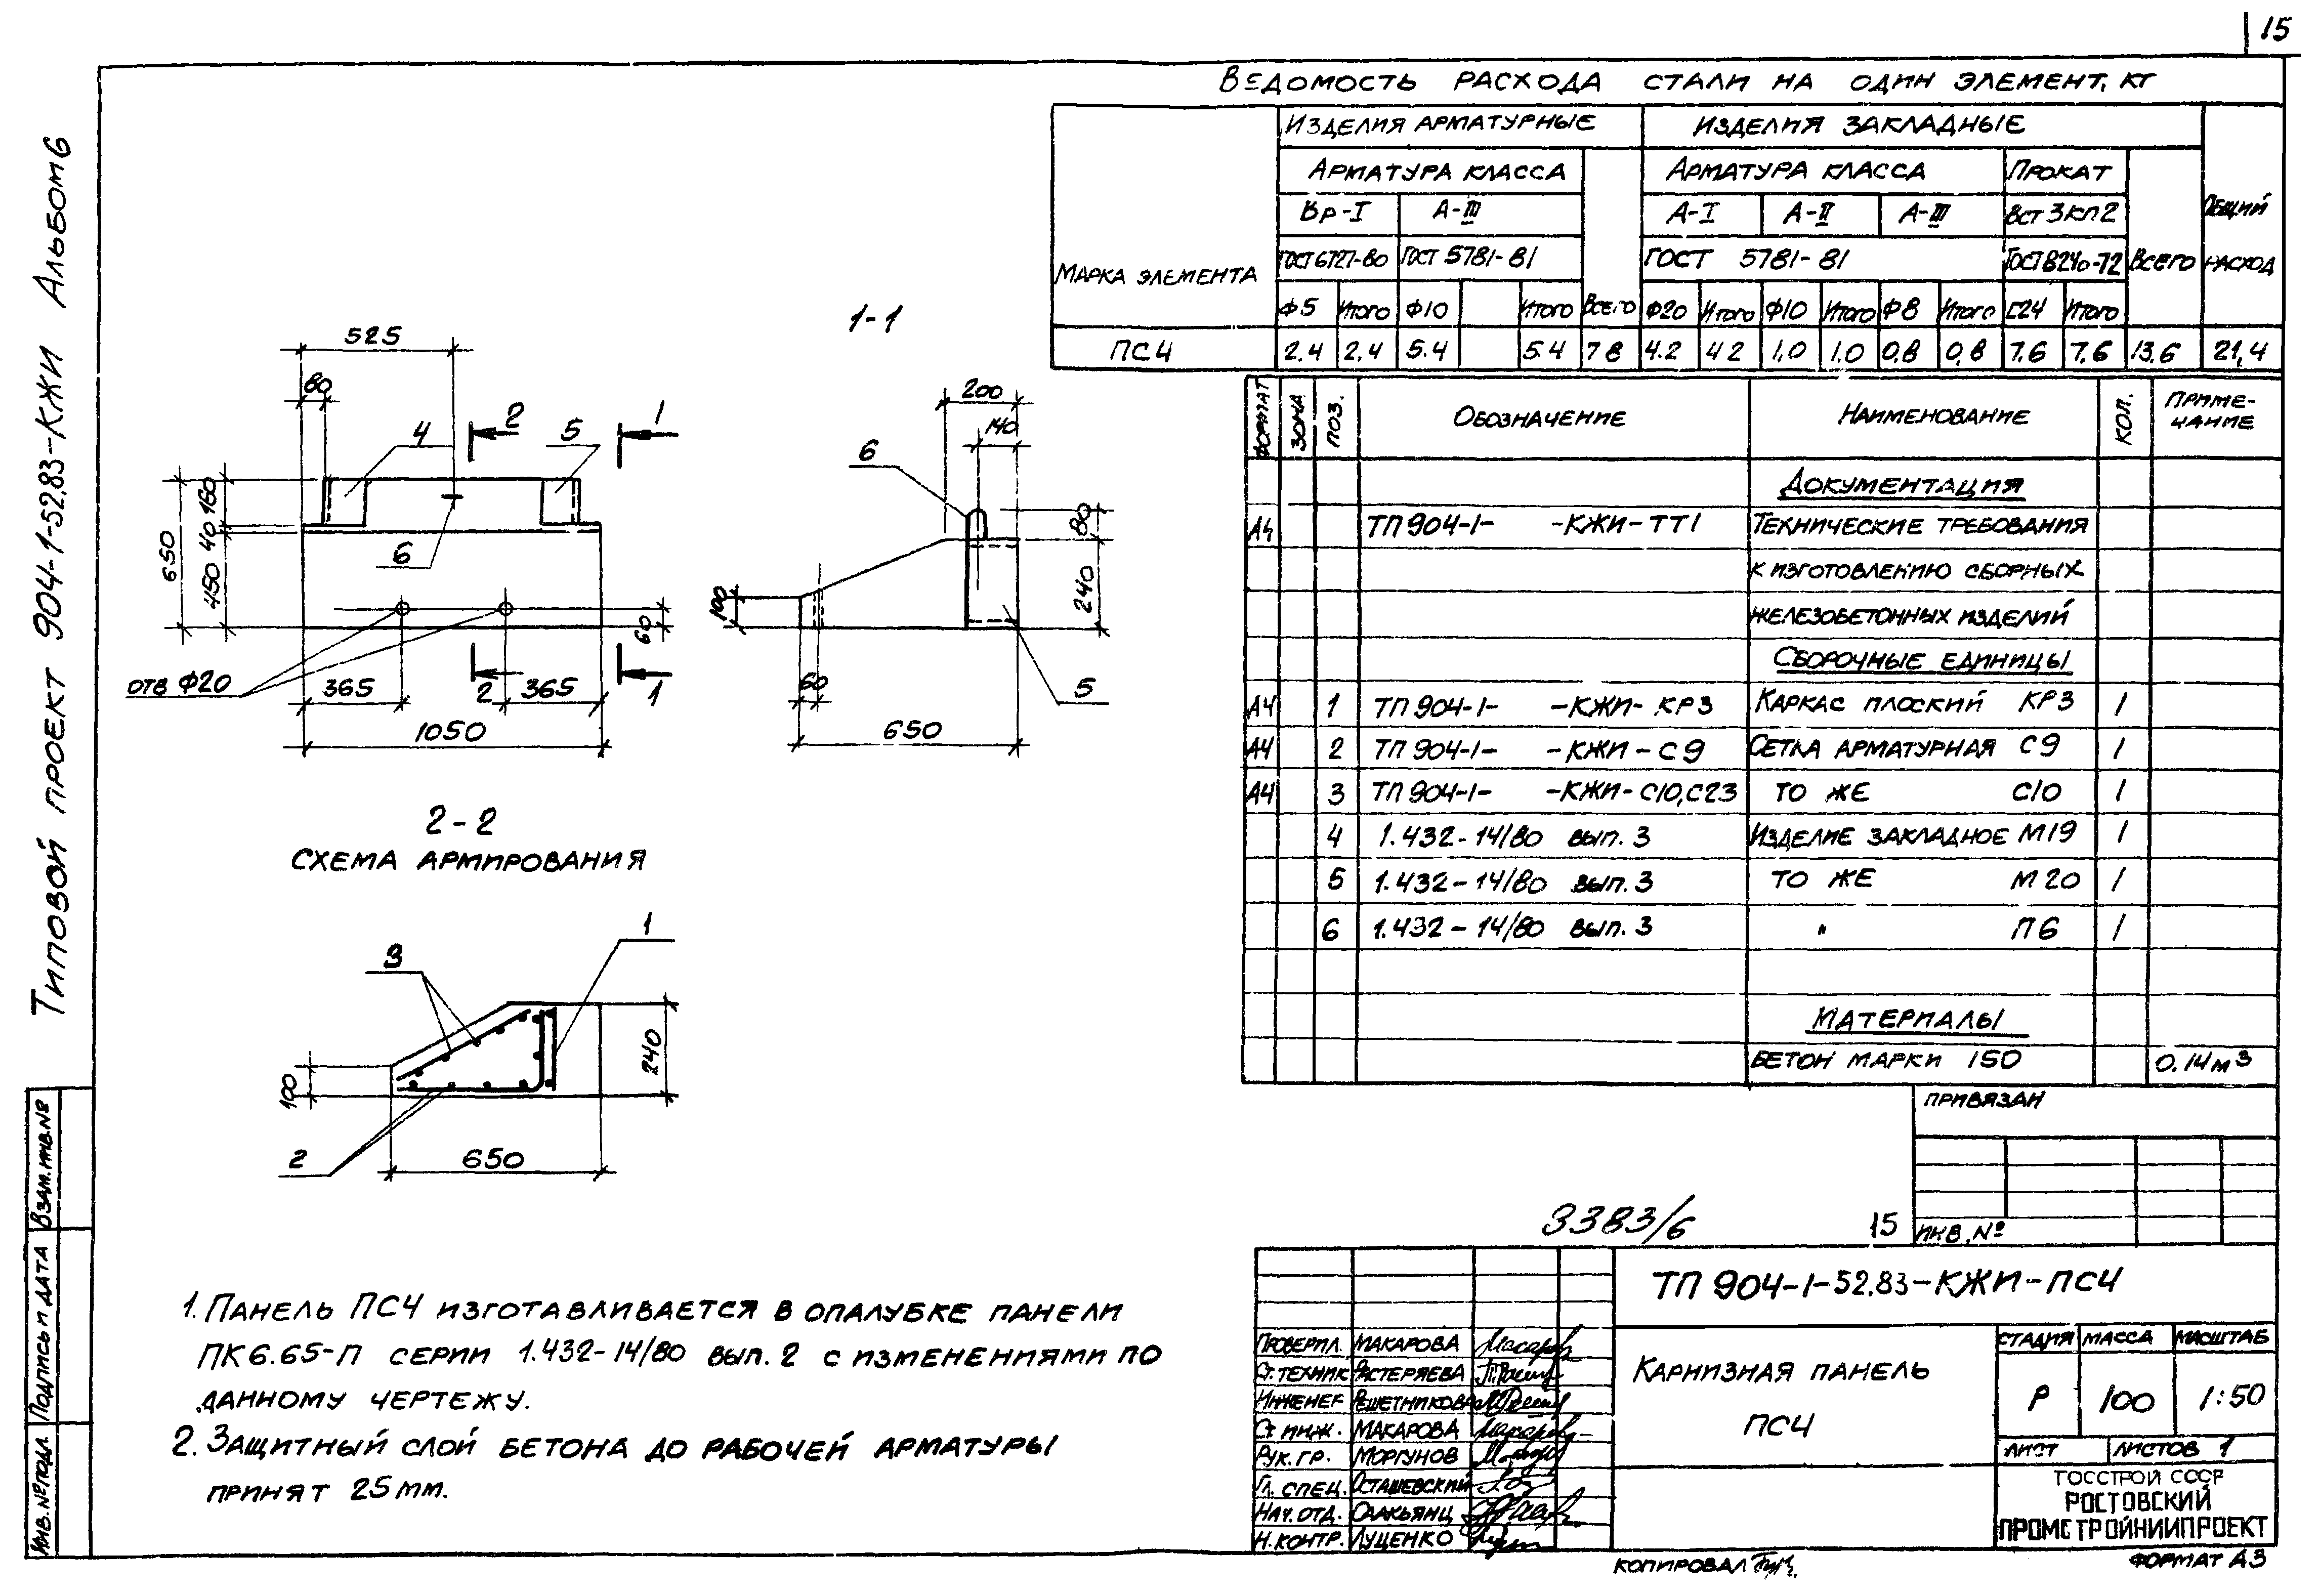 15
Типовой проект 904-1-52.83-КЖИ Альбом 6
Ведомость расхода стали на один элемент, кг
Марка элемента
Изделия арматурные
Изделия закладные
Общий расход
Арматура класса
Всего
Арматура класса
Прокат
Всего
Вр-I
А-III
А-I
А-II
А-III
Вст3кп2
ГОСТ 6727-80
ГОСТ 5781-81
ГОСТ 5781-81
ГОСТ 8240-72
Ф5 Итого Ф10 Итого Ф20 Итого Ф10 Итого Ф8 Итого С24 Итого
ПС4 2.4 2.4 5.4 5.4 7 8 4.2 4 2 1,0 1.0 0,8 0,8 7,6 7,6 13.6 21,4
525
80
4
2
5
1
650
450 40 160
6
60
отв Ф20
365
2
365
1
1050
1-1
200
140
6
80
240
100
60
5
650
2-2
Схема армирования
1
3
240
100
2
650
Формат Зона Поз. Обозначение Наименование Кол. Примечание
Документация
А4 ТП 904-1- -КЖИ-ТТ1 Технические требования
к изготовлению сборных
железобетонных изделий
Сборочные единицы
А4 1 ТП 904-1- -КЖИ-КР3 Каркас плоский КР3 1
А4 2 ТП 904-1- -КЖИ-С9 Сетка арматурная С9 1
А4 3 ТП 904-1- -КЖИ-С10,С23 То же С10 1
4 1.432-14/80 вып. 3 Изделие закладное М19 1
5 1.432-14/80 вып. 3 То же М20 1
6 1.432-14/80 вып. 3 " П6 1
Материалы
Бетон марки 150 0.14 м3
Привязан
Инв. №
3383/6 15
1. Панель ПС4 изготавливается в опалубке панели
ПК6.65-П серии 1.432-14/80 вып. 2 с изменениями по
данному чертежу.
2. Защитный слой бетона до рабочей арматуры
принят 25 мм.
ТП 904-1-52.83-КЖИ-ПС4
Проверил. Макарова
Ст. техник Растеряева
Инженер Решетникова
Ст. инж. Макарова
Рук. гр. Моргунов
Гл. спец. Осташевский
Нач. отд. Саакьянц
Н. контр. Луценко
Карнизная панель
ПС4
Стадия Масса Масштаб
Р 100 1:50
Лист Листов 1
Госстрой СССР
Ростовский
Промстройниипроект
Копировал
Формат А3
Инв. № подл. Подпись и дата Взам. инв. №